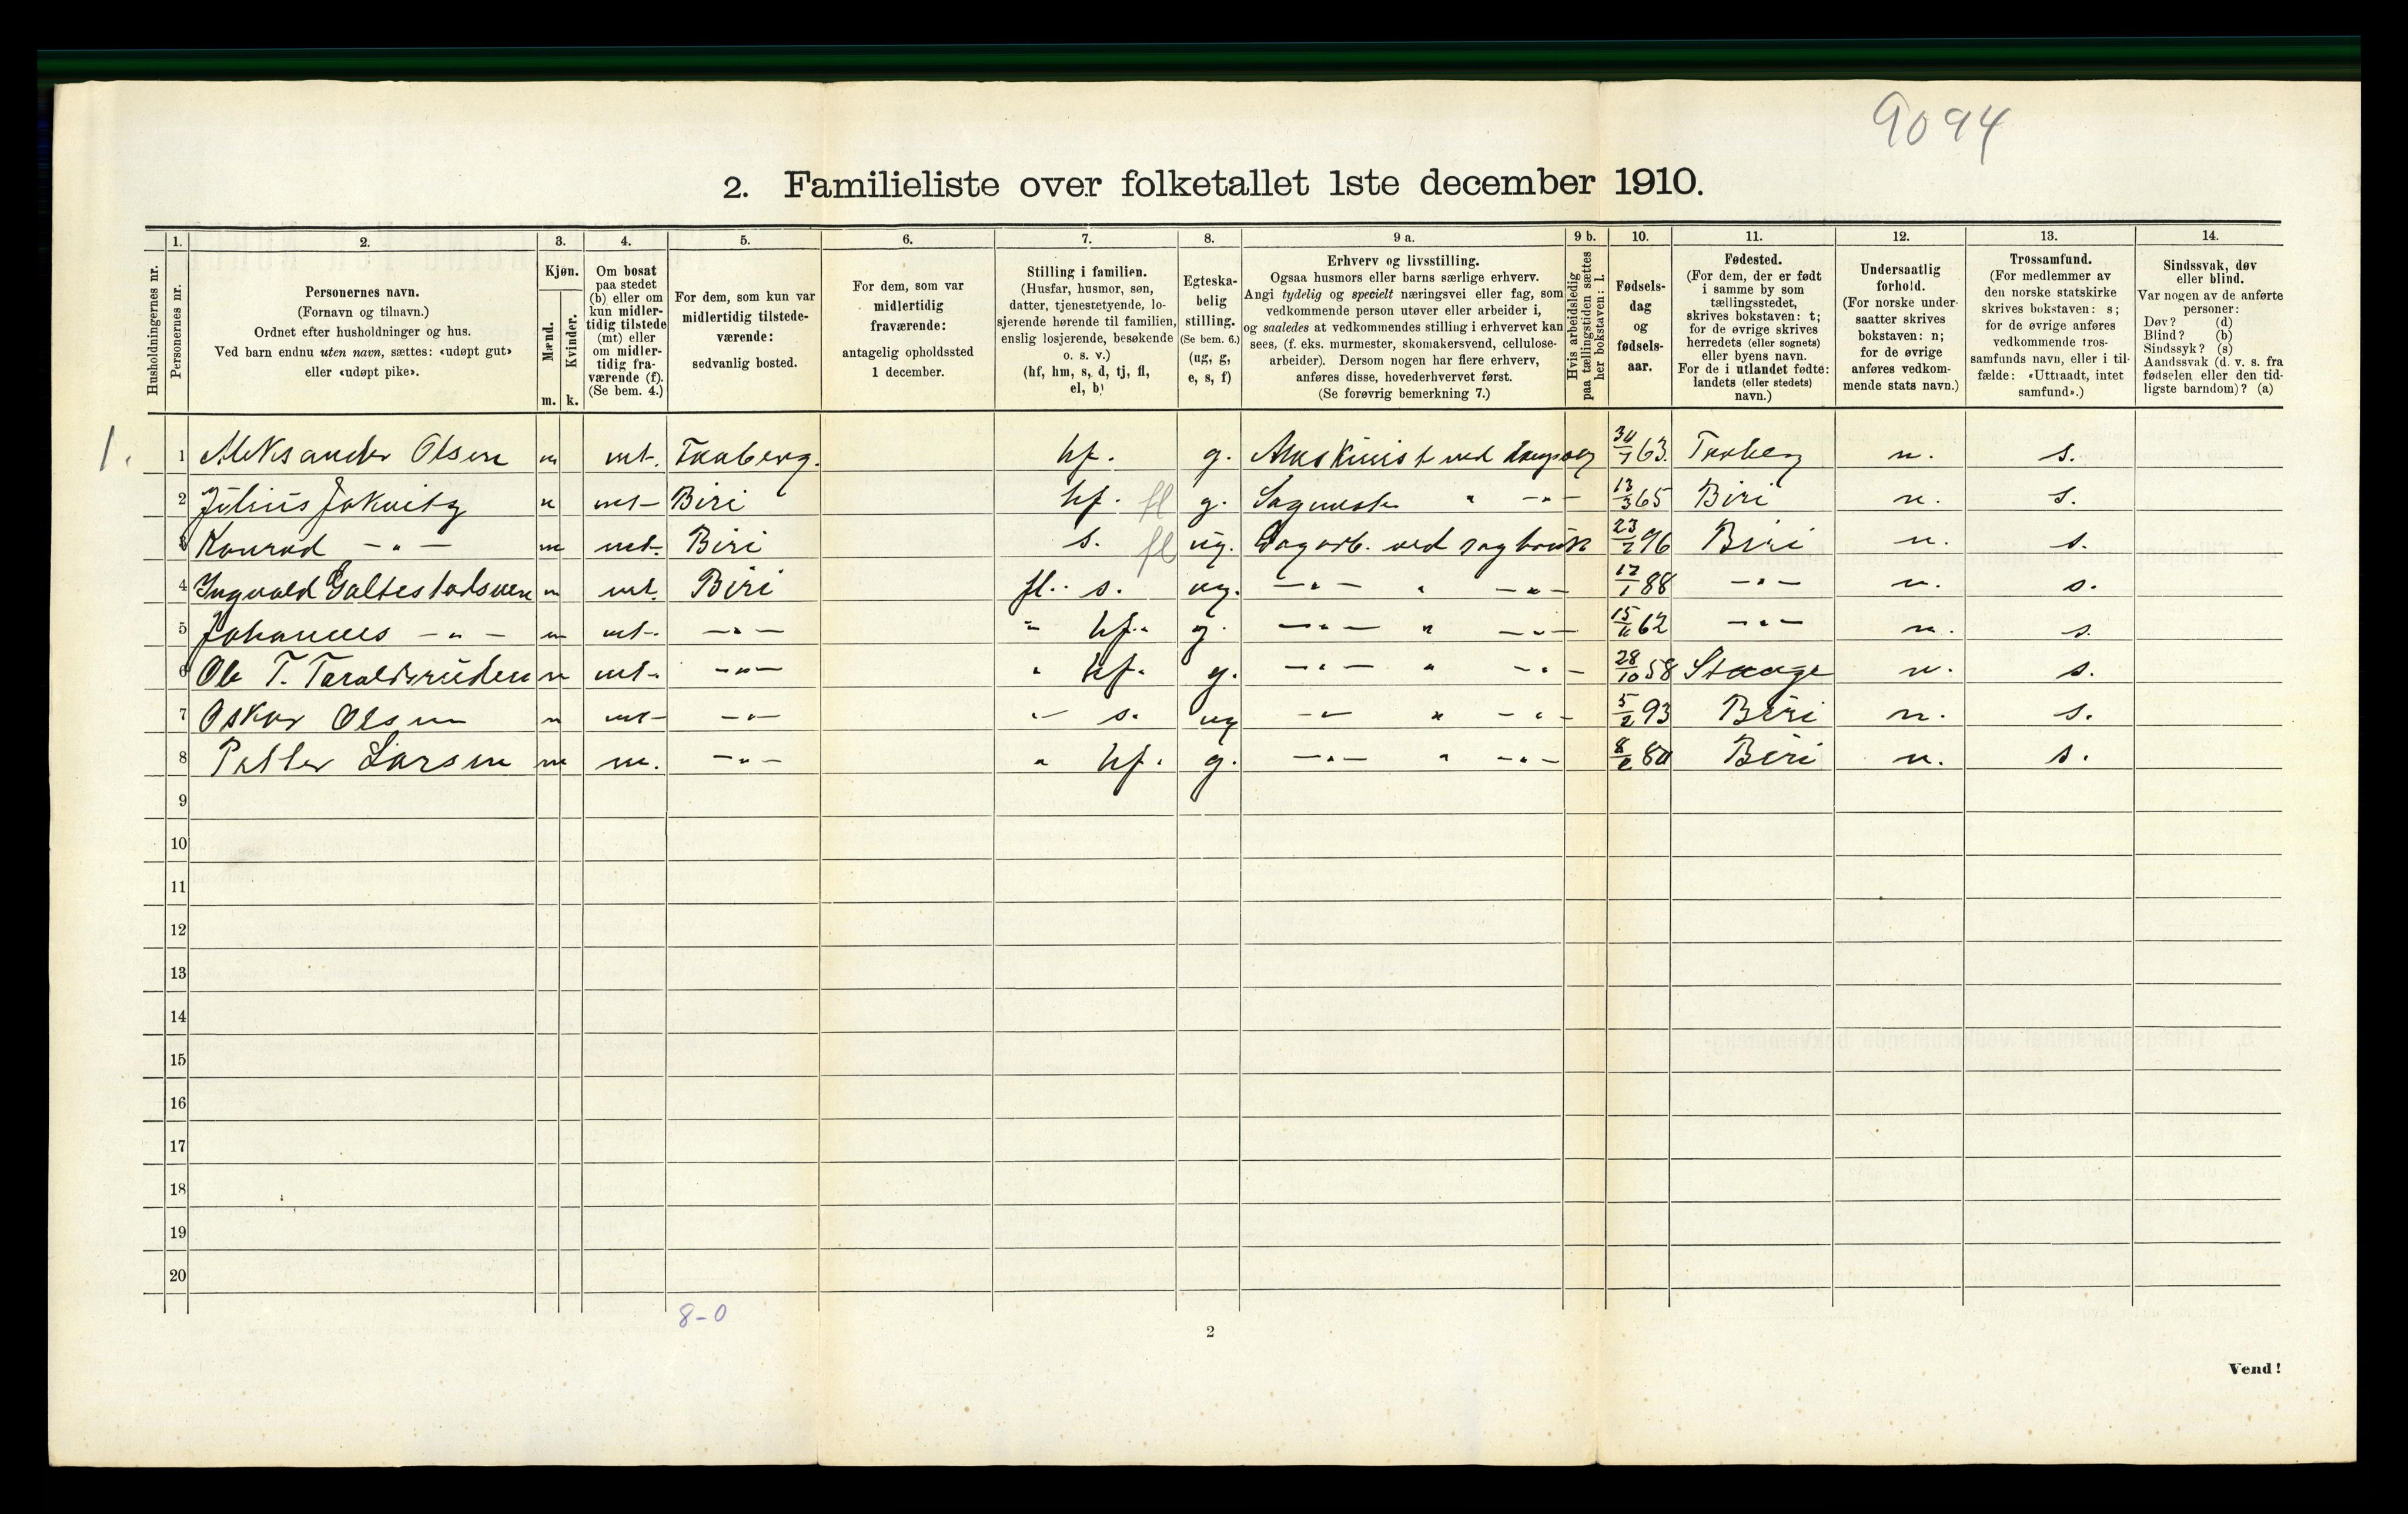 9094
2. Familieliste over folketallet 1ste december 1910.
1. 2. 3. 4. 5. 6. 7. 8. 9 a. 9 b. 10. 11. 12. 13. 14.
Husholdningernes nr.
Personernes nr.
Personernes navn.
(Fornavn og tilnavn.)
Ordnet efter husholdninger og hus.
Ved barn endnu uten navn, sættes: «udøpt gut»
eller «udøpt pike».
Kjøn.
Mænd.
Kvinder.
m. k.
Om bosat
paa stedet
(b) eller om
kun midler-
tidig tilstede
(mt) eller
om midler-
tidig fra-
værende (f).
(Se bem. 4.)
For dem, som kun var
midlertidig tilstede-
værende:
sedvanlig bosted.
For dem, som var
midlertidig
fraværende:
antagelig opholdssted
1 december.
Stilling i familien.
(Husfar, husmor, søn,
datter, tjenestetyende, lo-
sjerende hørende til familien,
enslig losjerende, besøkende
o. s. v.)
(hf, hm, s, d, tj, fl,
el, b)
Egteska-
belig
stilling.
(Se bem. 6.)
(ug, g,
e, s, f)
Erhverv og livsstilling.
Ogsaa husmors eller barns særlige erhverv.
Angi tydelig og specielt næringsvei eller fag, som
vedkommende person utøver eller arbeider i,
og saaledes at vedkommendes stilling i erhvervet kan
sees, (f. eks. murmester, skomakersvend, cellulose-
arbeider). Dersom nogen har flere erhverv,
anføres disse, hovederhvervet først.
(Se forøvrig bemerkning 7.)
Hvis arbeidsledig
paa tællingstiden sættes
her bokstaven: l.
Fødsels-
dag
og
fødsels-
aar.
Fødested.
(For dem, der er født
i samme by som
tællingsstedet,
skrives bokstaven: t;
for de øvrige skrives
herredets (eller sognets)
eller byens navn.
For de i utlandet fødte:
landets (eller stedets)
navn.)
Undersaatlig
forhold.
(For norske under-
saatter skrives
bokstaven: n;
for de øvrige
anføres vedkom-
mende stats navn.)
Trossamfund.
(For medlemmer av
den norske statskirke
skrives bokstaven: s;
for de øvrige anføres
vedkommende tros-
samfunds navn, eller i til-
fælde: «Uttraadt, intet
samfund».)
Sindssvak, døv
eller blind.
Var nogen av de anførte
personer:
Døv? (d)
Blind? (b)
Sindssyk? (s)
Aandssvak (d. v. s. fra
fødselen eller den tid-
ligste barndom)? (a)
1. 1 Aleksander Olsen m mt. Faaberg. hf. g. Maskinist ved dampsag 30/7 63. Faaberg n. s.
2 Julius m mt- Biri hf. fl g. Sagmester " -"- 13/3 65 Biri n. s.
3 Konrad -"- m mt. Biri s. fl ug. Dagarb. ved sagbruk 23/2 96 Biri n. s.
4 Ingvald m mt. Biri fl. s. ug. -"- " -"- 17/1 88 -"- n. s.
5 Johannes -"- m mt. -"- " hf. g. -"- " -"- 15/11 62 -"- n. s.
6 Ole T. Taraldsruden m mt. -"- " hf. g. -"- " -"- 28/10 58 Stange n. s.
7 Oskar Olsen m mt- -"- " s. ug -"- " -"- 5/2 93 Biri n. s.
8 Petter Larsen m m. -"- " hf. g. -"- " -"- 8/2 80 Biri n. s.
9
10
11
12
13
14
15
16
17
18
19
20
8-0
2
Vend!